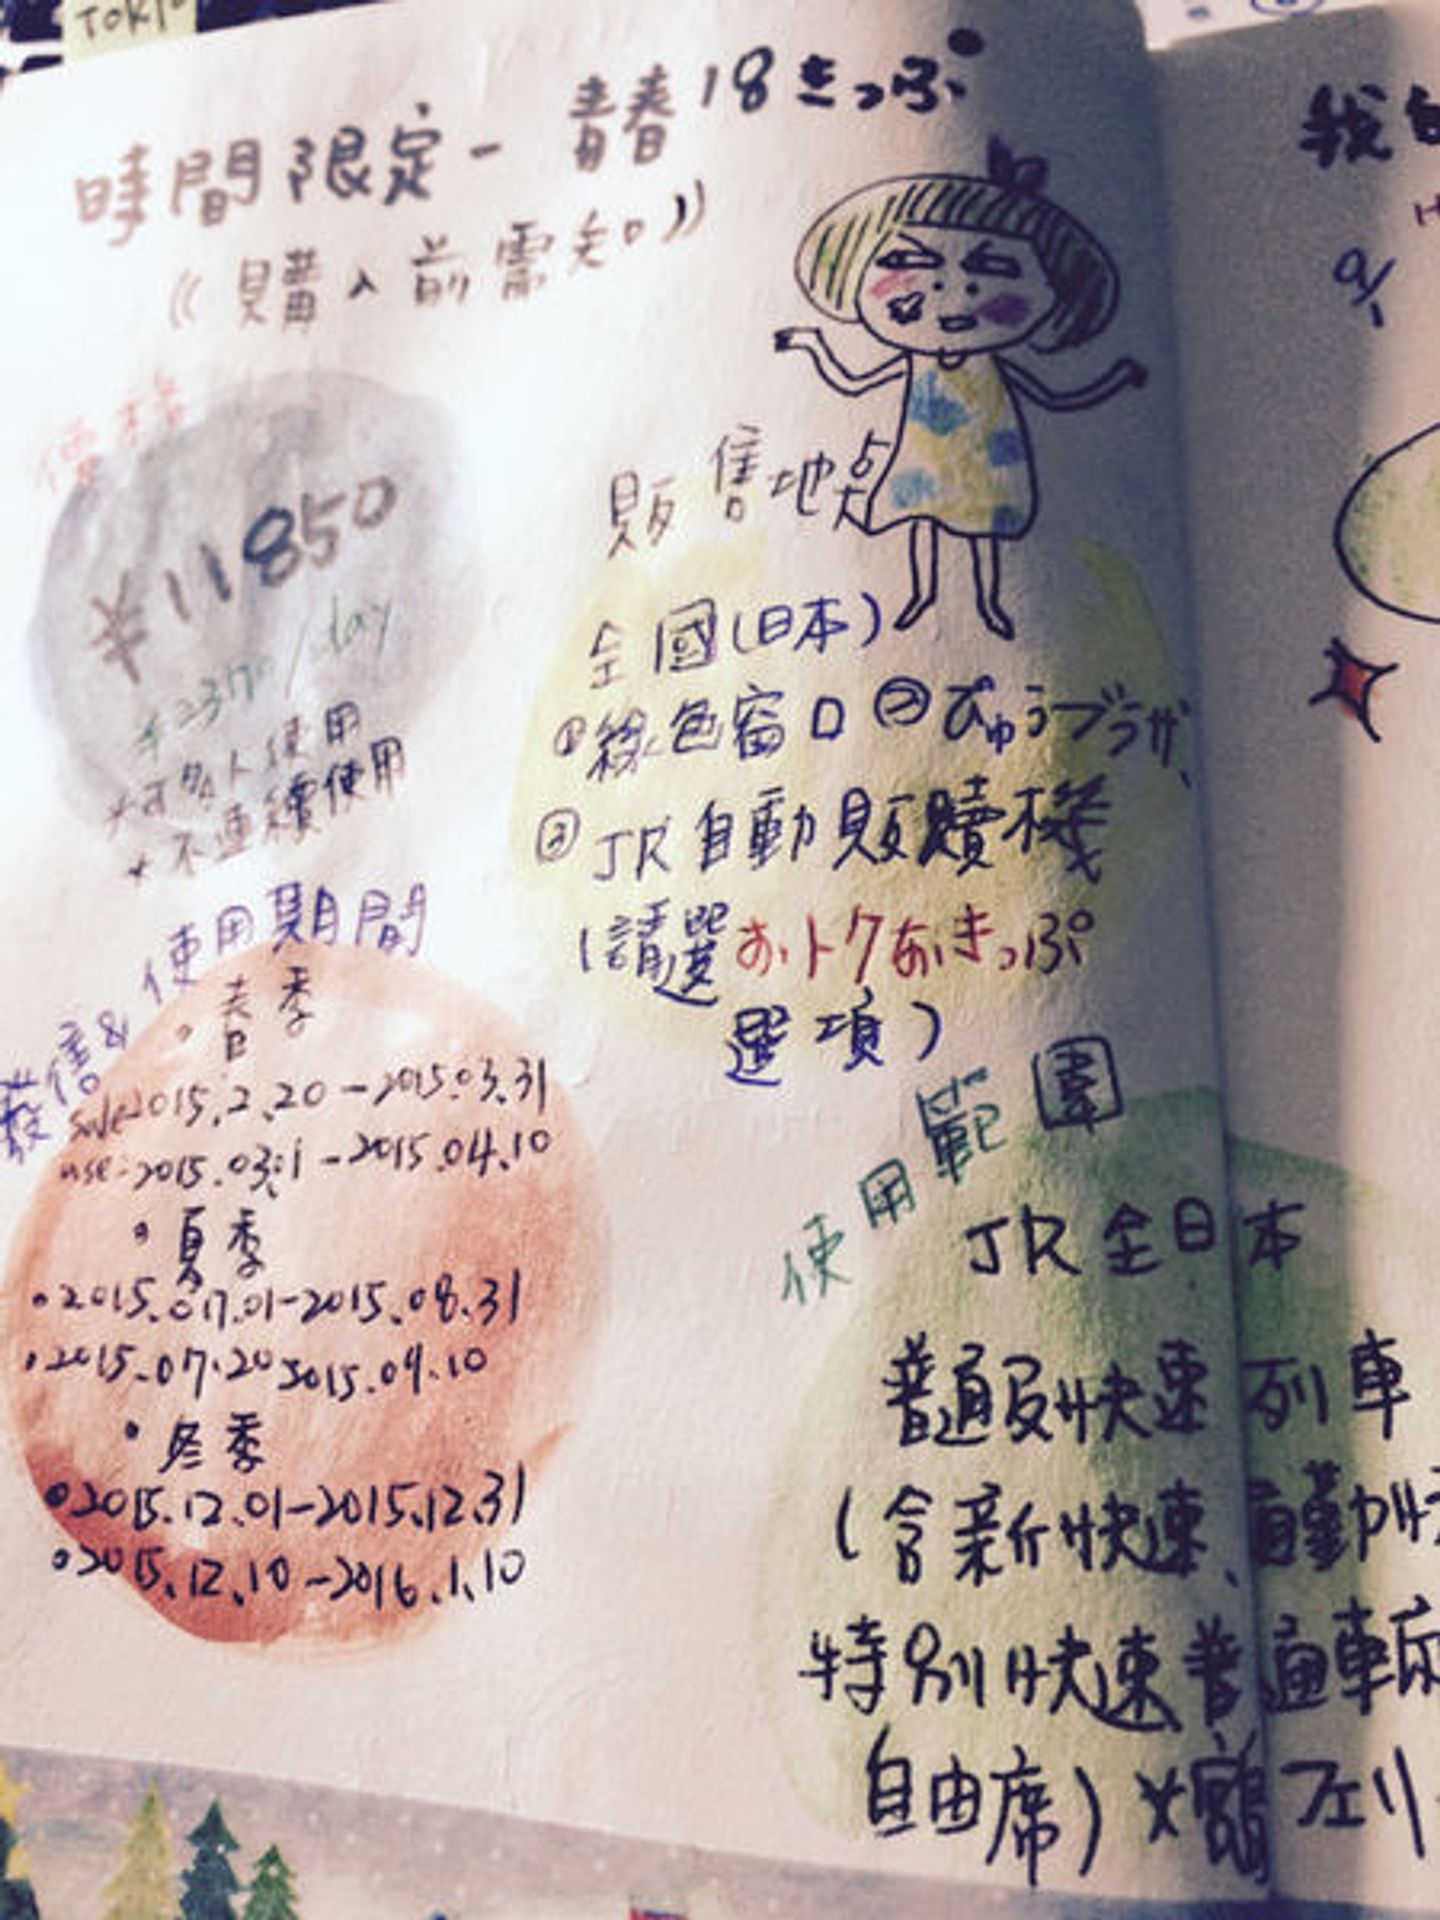 TOKYO
時間限定-青春18きっぷ
((購入前需知))
價格
¥11850
/day
*可多人使用
*不連續使用
販售地点
全國(日本)
①綠色窗口②びゅうプラザ、
③JR自動販賣機
(請選おトクなきっぷ
選項)
發售&使用期間
•春季
sale:2015.2.20-2015.03.31
use:2015.03.1-2015.04.10
•夏季
•2015.07.01-2015.08.31
•2015.07.20 2015.09.10
•冬季
•2015.12.01-2015.12.31
•2015.12.10-2016.1.10
使用範圍
JR全日本
普通及快速列車
(含新快速、
特別快速普通車
自由席)
フェリ
我
9/